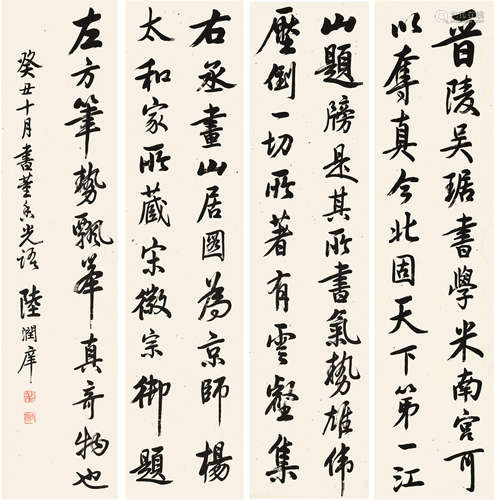 晋陵吴琚書學米南宮可
以奪真今北固天下第一江
山題牓是其所書氣勢雄偉
壓倒一切所著有雲壑集
右丞畫山居圖為京師楊
太和家所藏宋徽宗御題
左方筆勢飄舉真奇物也
癸丑十月書董香光語 陸潤庠